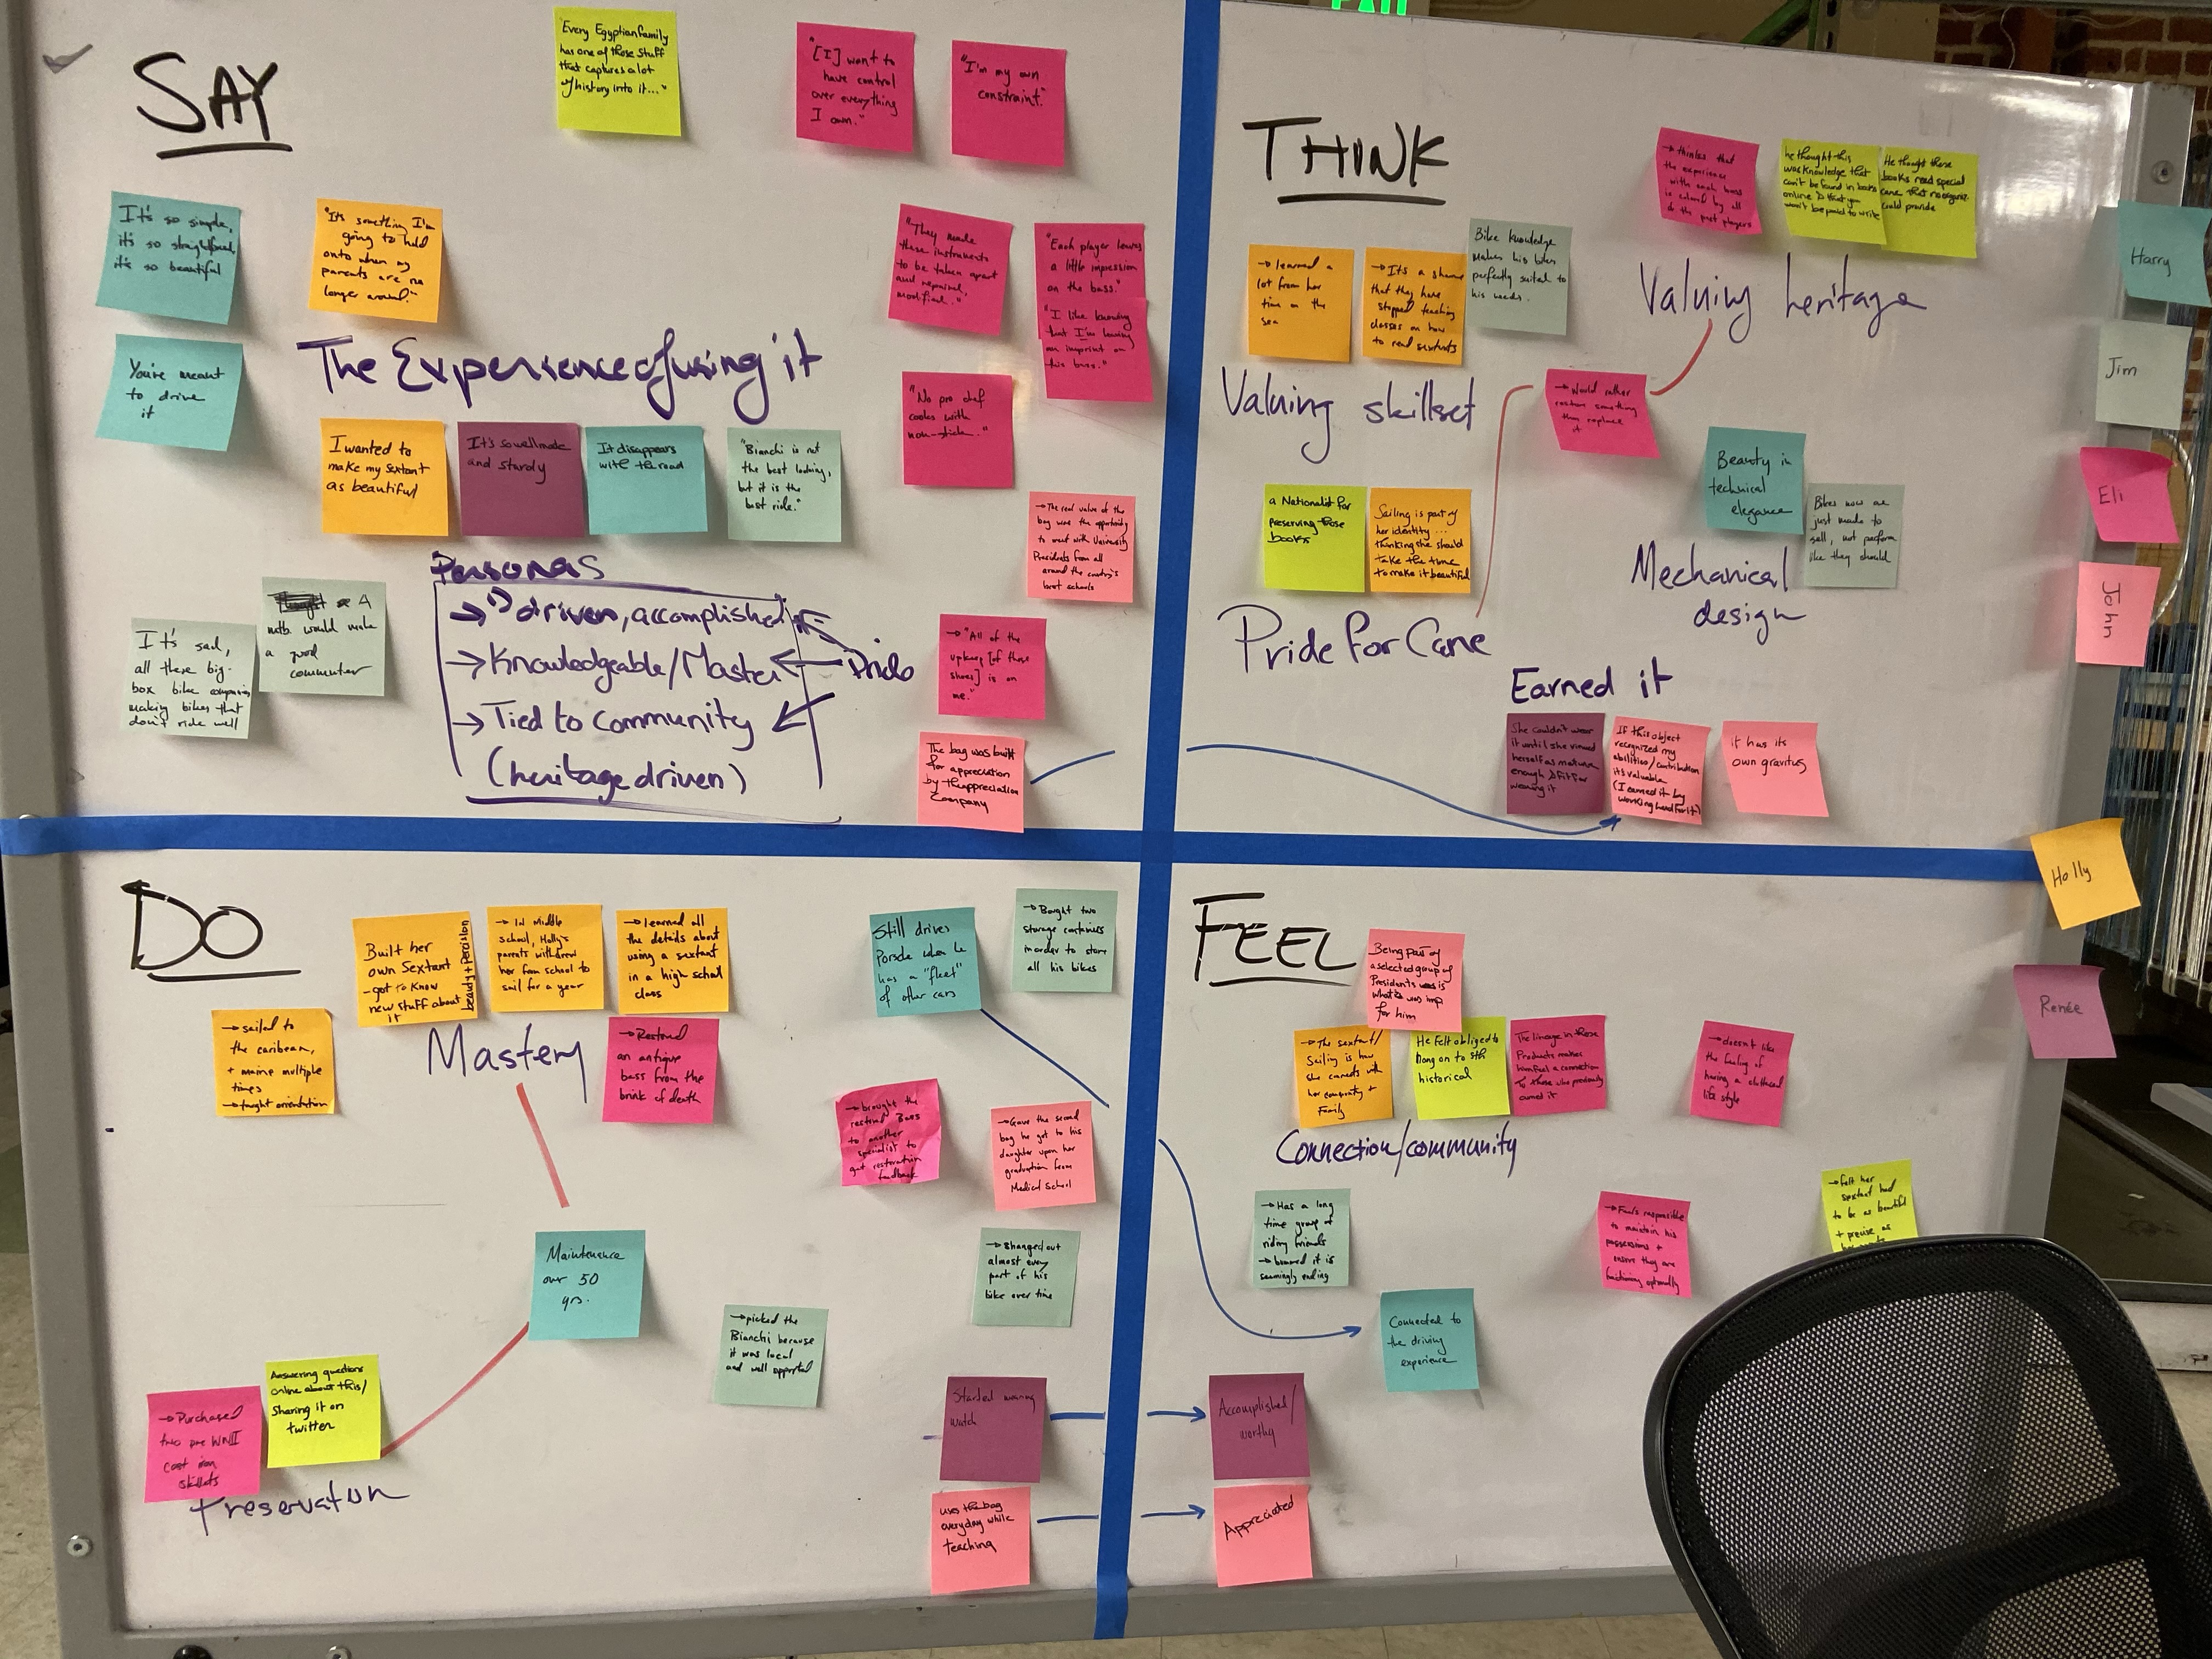 SAY
"Every Egyptian family
has one of those stuff
that captures a lot
of history into it..."
"[I] want to
have control
over everything
I own."
"I'm my own
constraint."
It's so simple,
it's so straightforward,
it's so beautiful
"It's something I'm
going to hold
onto when my
parents are no
longer around."
"They made
these instruments
to be taken apart
and repaired,
modified."
"Each player leaves
a little impression
on the bass."
"I like knowing
that I'm leaving
an imprint on
this bass."
You're meant
to drive
it
The Experience of using it
"No pro chef
cooks with
non-stick."
I wanted to
make my sextant
as beautiful
It's so well made
and sturdy
It disappears
with the road
"Bianchi is not
the best looking,
but it is the
best ride."
→ The real value of the
bag was the opportunity
to meet with University
Presidents from all
around the country's
best schools
Personas
→ driven, accomplished
→ Knowledgeable/Master
→ Tied to community
(heritage driven)
Pride
A
mtb. would make
a good
commuter
It's sad,
all these big-
box bike companies
making bikes that
don't ride well
→ "All of the
upkeep [of those
shoes] is on
me."
The bag was built
for appreciation
by the appreciation
Company
THINK
→ thinks that
the experience
with each bass
is colored by all
of the past players
he thought this
was knowledge that
can't be found in books
online & that you
won't be paid to write
He thought these
books need special
care that no
could provide
→ learned a
lot from her
time on the
sea
→ It's a shame
that they have
stopped teaching
classes on how
to read sextants
Bike knowledge
makes his bikes
perfectly suited to
his needs.
Valuing heritage
Valuing skillset
→ Would rather
restore something
than replace
it
Beauty in
technical
elegance
Bikes now are
just made to
sell, not perform
like they should
a Nationalist for
preserving those
books
Sailing is part of
her identity...
thinking she should
take the time
to make it beautiful
Mechanical
design
Pride for Care
Earned it
She couldn't wear
it until she viewed
herself as mature
enough & fit for
wearing it
If this object
recognized my
abilities/contribution
it's valuable
(I earned it by
working hard for it)
it has its
own gravitas
Harry
Jim
Eli
John
Holly
Renée
DO
Built her
own Sextant
- got to know
new stuff about
it
beauty + precision
→ In Middle
school, Holly's
parents withdrew
her from school to
sail for a year
→ learned all
the details about
using a sextant
in a high school
class
Still drives
Porsche when he
has a "fleet"
of other cars
→ Bought two
storage containers
in order to store
all his bikes
→ sailed to
the caribean,
+ maine multiple
times
→ taught orientation
Mastery
→ Restored
an antique
bass from the
brink of death
→ brought the
restored Bass
to another
specialist to
get restoration
feedback
→ Gave the second
bag he got to his
daughter upon her
graduation from
Medical School
Maintenance
over 50
yrs.
→ changed out
almost every
part of his
bike over time
→ picked the
Bianchi because
it was local
and well
→ Purchased
two pre WWII
cast iron
skillets
Answering questions
online about this/
Sharing it on
twitter
Preservation
Started wearing
watch
uses the bag
everyday while
teaching
FEEL
Being part of
a selected group of
Presidents is
what was imp
for him
→ The sextant/
Sailing is how
she connects with
her community +
Family
He felt obliged to
hang on to sth
historical
The lineage in these
Products makes
him feel a connection
to those who previously
owned it
→ doesn't like
the feeling of
having a cluttered
life style
Connection/community
→ Has a long
time group of
riding friends
→ bummed it is
seemingly ending
→ Feels responsible
to maintain his
possessions +
ensure they are
functioning optimally
→ felt her
sextant had
to be as beautiful
+ precise as
Connected to
the driving
experience
Accomplished/
worthy
Appreciated